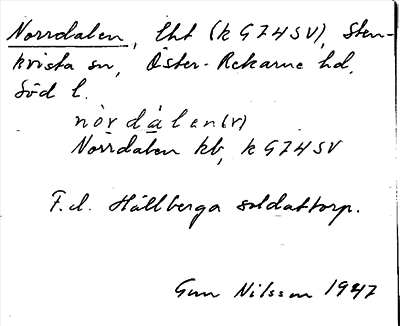 Norrdalen, lht (k G7HSV), Sten-
kvista sn, Öster-Rekarne hd,
Söd l.
nòrdàlen(r)
Norrdalen kb, k G7HSV
F.d. Hällberga soldattorp.
Gun Nilsson 1947